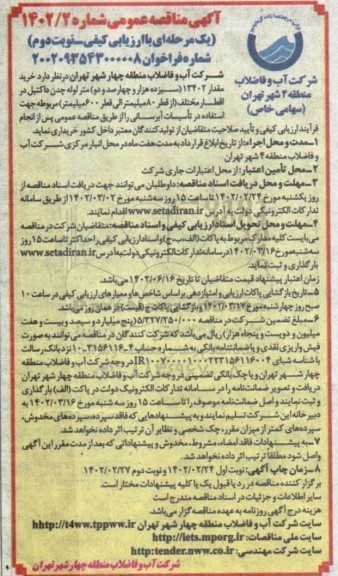 آگهی مناقصه عمومی شماره ۱۴۰۲/۲
(یک مرحله‌ای با ارزیابی کیفی_نوبت دوم)
شماره فراخوان ۲۰۰۲۰۹۳۵۴۳۰۰۰۰۰۸
شرکت آب و فاضلاب
منطقه ۴ شهر تهران
(سهامی خاص)
شرکت آب و فاضلاب منطقه چهار شهر تهران در نظر دارد خرید
مقدار ۱۳۴۰۲ (سیزده هزار و چهارصد و دو) متر لوله چدن داکتیل در
اقطار مختلف (از قطر ۸۰ میلیمتر الی قطر ۶۰۰ میلیمتر) مربوطه جهت
استفاده در تأسیسات آبرسانی را از طریق مناقصه عمومی پس از انجام
فرآیند ارزیابی کیفی و تأیید صلاحیت متقاضیان از تولیدکنندگان معتبر داخل کشور خریداری نماید.
۱_مدت و محل اجراء: از تاریخ ابلاغ قرارداد به مدت هفت ماه در محل انبار مرکزی شرکت آب
و فاضلاب منطقه ۴ شهر تهران
۲_محل تأمین اعتبار: از محل اعتبارات جاری شرکت
۳_مهلت و محل دریافت اسناد مناقصه: داوطلبان می‌توانند جهت دریافت اسناد مناقصه از
روز یکشنبه مورخ ۱۴۰۲/۰۲/۲۴ تا ساعت ۱۵ روز سه‌شنبه مورخ ۱۴۰۲/۰۳/۰۲ از طریق سامانه
تدارکات الکترونیکی دولت به آدرس www.setadiran.ir اقدام نمایند.
۴_مهلت و محل تحویل اسناد ارزیابی کیفی و اسناد مناقصه: متقاضیان شرکت در مناقصه
می‌بایست کلیه مدارک مربوط به پاکات (الف، ب، ج) و اسناد ارزیابی کیفی را حداکثر تا ساعت ۱۵ روز
سه شنبه مورخ ۱۴۰۲/۰۳/۱۶ در سامانه تدارکات الکترونیکی دولت به آدرس www.setadiran.ir
بارگذاری و ثبت نمایند.
زمان اعتبار پیشنهاد قیمت متقاضیان تا تاریخ ۱۴۰۲/۰۶/۱۶ می‌باشد.
۵_تاریخ بازگشایی پاکات ارزیابی و امتیازدهی بر اساس شاخص‌ها و معیارهای ارزیابی کیفی در ساعت ۱۰
صبح روز چهارشنبه مورخ ۱۴۰۲/۰۳/۱۷ و بازگشایی پاکات ج (قیمت) در همان روز می‌باشد.
۶_مبلغ تضمین شرکت در مناقصه ۵/۲۳۷/۲۵۰/۰۰۰ (پنج میلیارد و دویست و سی و هفت
میلیون و دویست و پنجاه هزار) ریال می‌باشد که شرکت کنندگان در مناقصه می‌توانند به صورت
فیش واریزی نقدی و یا ضمانتنامه بانکی به شماره حساب نزد بانک رسالت
با شناسه شبای در وجه شرکت آب و فاضلاب منطقه
چهار شهر تهران و یا چک بانکی تضمینی در وجه شرکت آب و فاضلاب منطقه چهار شهر تهران
دریافت و تصویر ضمانت نامه را در سامانه تدارکات الکترونیک دولت در پاکت (الف) بارگذاری
و ثبت نمایند و اصل ضمانت‌نامه موصوف را تا ساعت ۱۵ روز سه شنبه مورخ ۱۴۰۲/۰۳/۱۶ به
دبیرخانه این شرکت تسلیم نمایند و به پیشنهادهایی که فاقد سپرده، سپرده‌های مخدوش،
سپرده‌های کمتر از میزان مقرر، چک شخصی و نظایر آن ترتیب اثر داده نخواهد شد.
۷_به پیشنهادات فاقد امضاء، مشروط، مخدوش و پیشنهاداتی که بعد از مدت مقرر این آگهی
واصل شود مطلقا ترتیب اثر داده نخواهد شد.
۸_زمان چاپ آگهی: نوبت اول ۱۴۰۲/۰۲/۲۴ و نوبت دوم ۱۴۰۲/۰۲/۲۷
برگزار کننده مناقصه در رد یا قبول یک یا کلیه پیشنهادات مختار است.
سایر اطلاعات و جزئیات در اسناد مناقصه مندرج است
هزینه درج آگهی روزنامه به عهده مناقصه گزار می‌باشد.
سایت شرکت آب و فاضلاب منطقه چهار شهر تهران http://t4ww.tppww.ir
سایت ملی مناقصات: http://iets.mporg.ir
سایت شرکت مهندسی: http:tender.nww.co.ir
شرکت آب و فاضلاب منطقه چهار شهر تهران